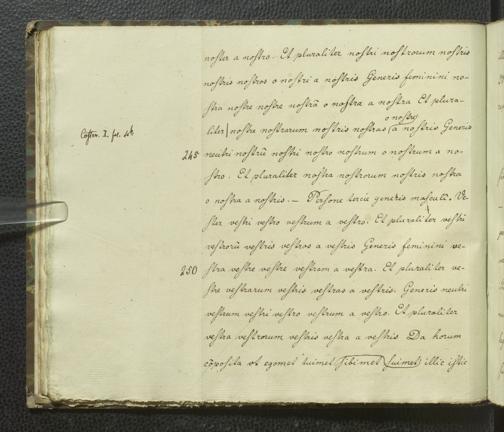 noster a nostro. Et pluraliter nostri nostrorum nostris
nostris nostros o nostri a nostris Generis feminini no-
stra nostre nostre nostrā o nostra a nostra Et plura-
o nostre
liter nostre nostrarum nostris nostras a nostris Generis
245 neutri nostrū nostri nostro nostrum o nostrum a no-
stro. Et pluraliter nostra nostrorum nostris nostra
o nostra a nostris. — Persone tercie generis masculī. Ve-
ster vestri vestro vestrum a vestro. Et pluraliter vestri
vestrorū vestris vestros a vestris Generis feminini ve-
250 stra vestre vestre vestram a vestra. Et pluraliter ve-
stre vestrarum vestris vestras a vestris. Generis neutri
vestrum vestri vestro vestrum a vestro. Et pluraliter
vestra vestrorum vestris vestra a vestris Da horum
cōposita ut egomet tuimet sibimet suimet illic istic